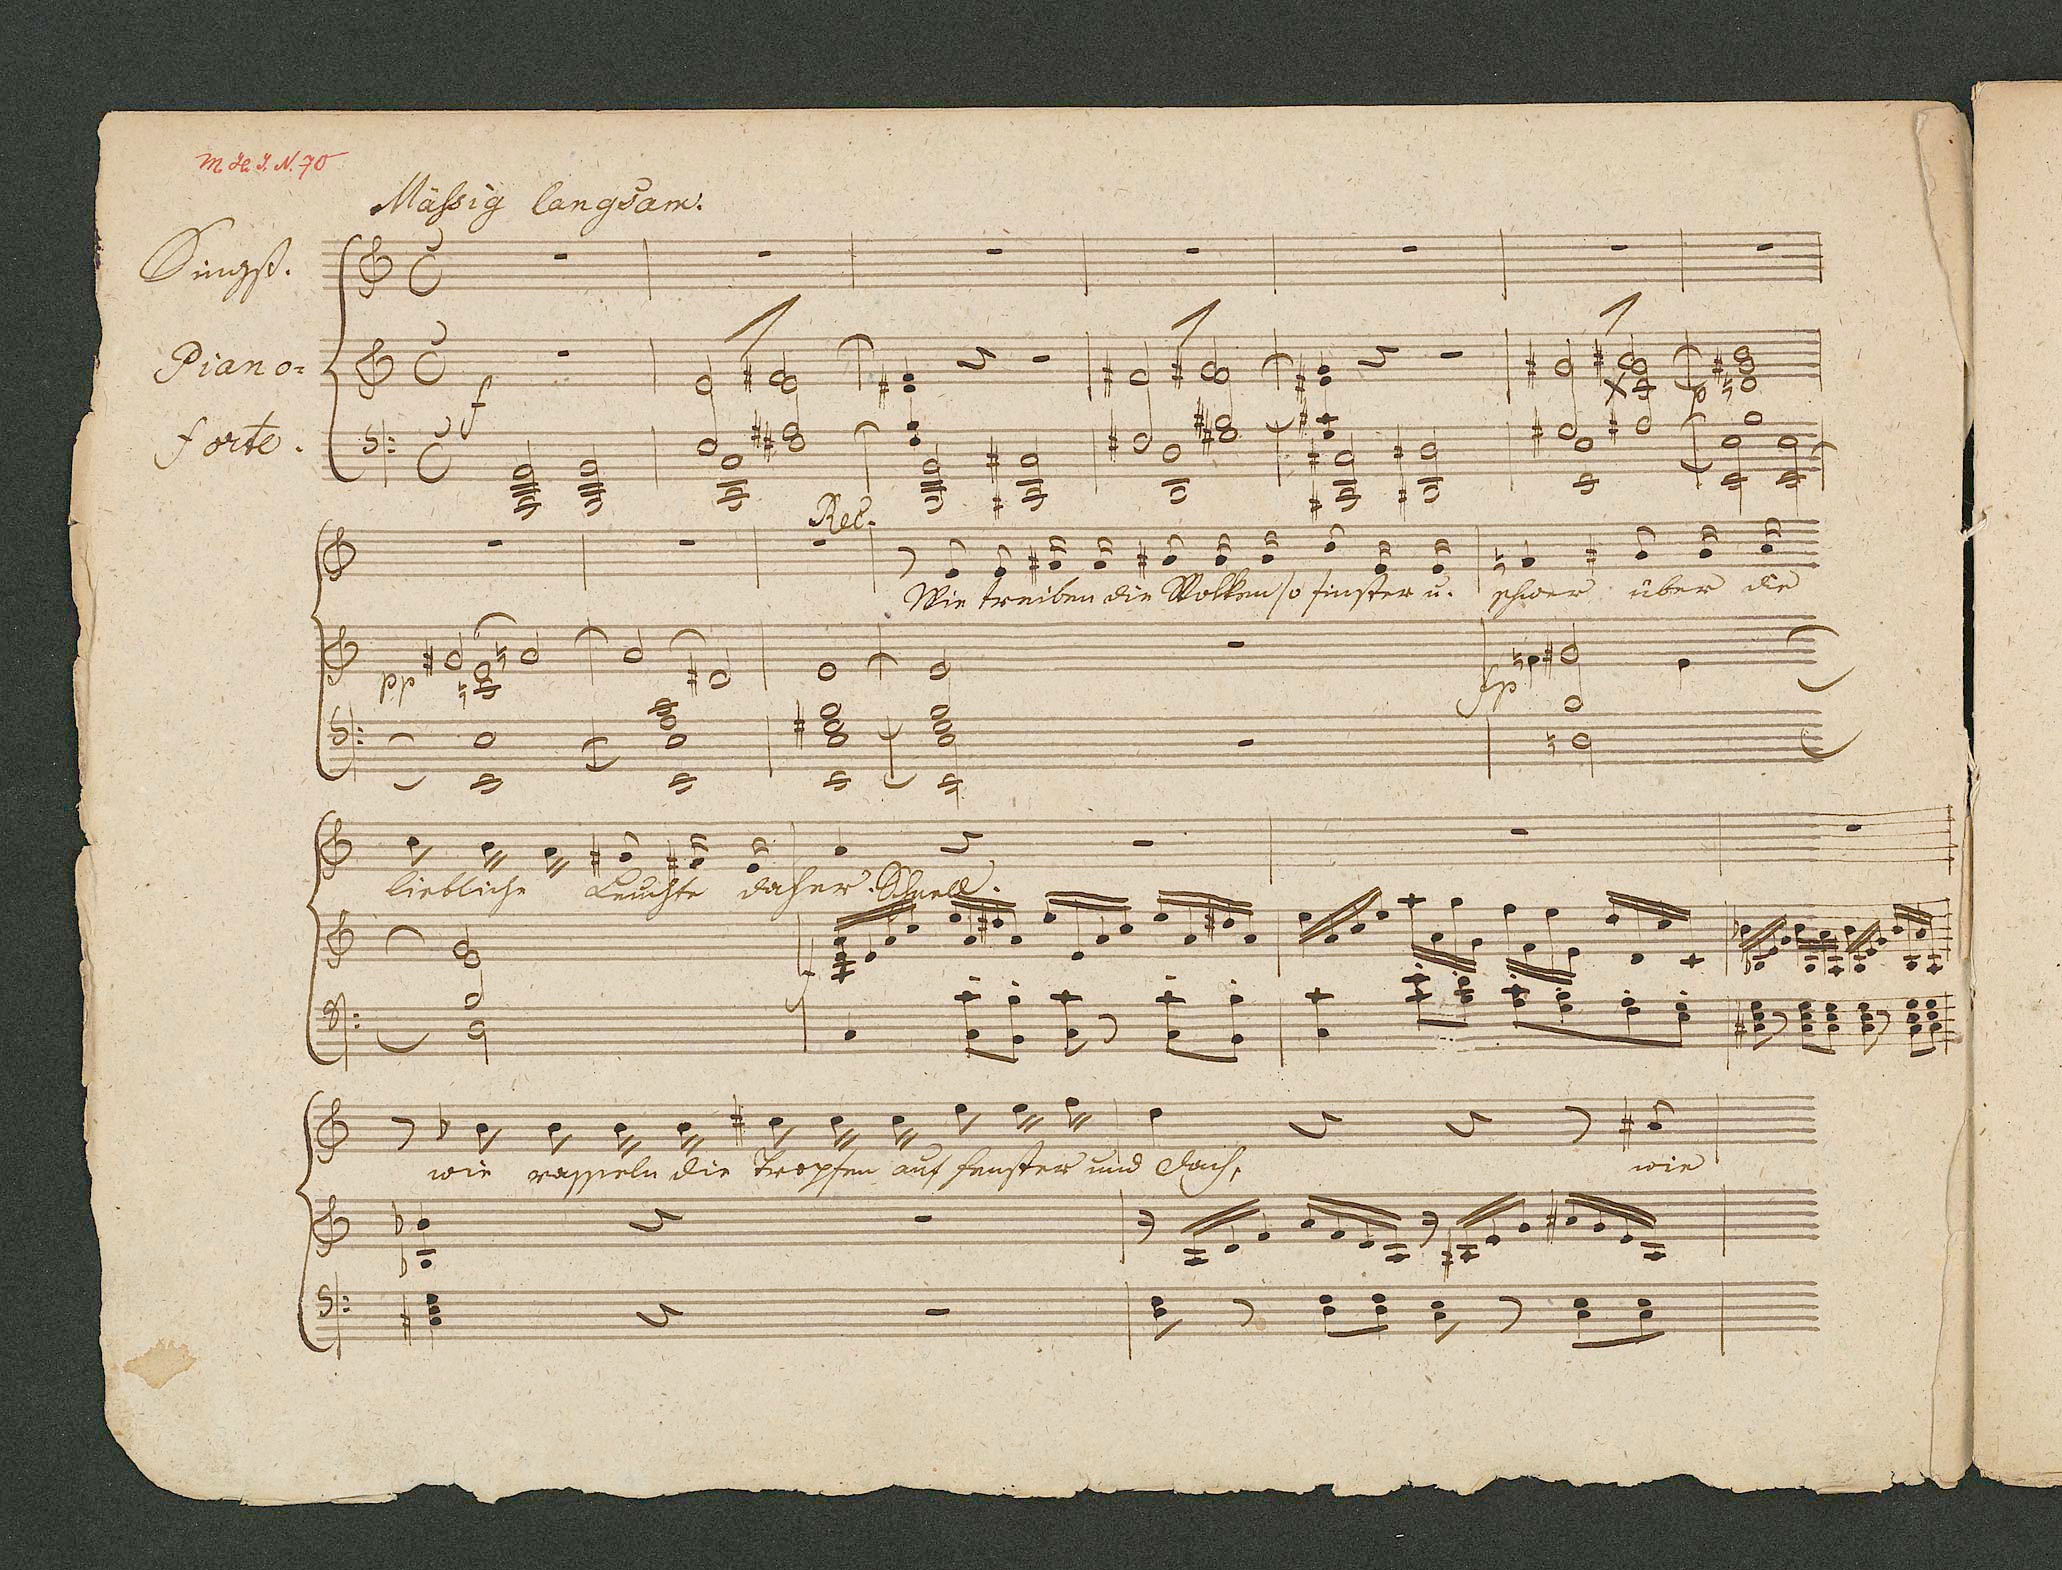 M. H. I. N. 70
Mässig langsam.
Singst.
Piano=
forte.
f
p
Rec.
Wie treiben die Wolken so finster u. schwer über die
pp
fp
liebliche Leuchte daher. Schnell.
f
wie rasseln die Tropfen auf Fenster und Dach, wie